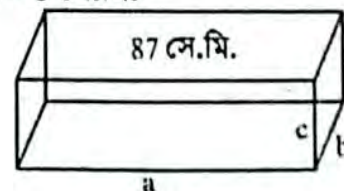 87 সে.মি.
c
b
a